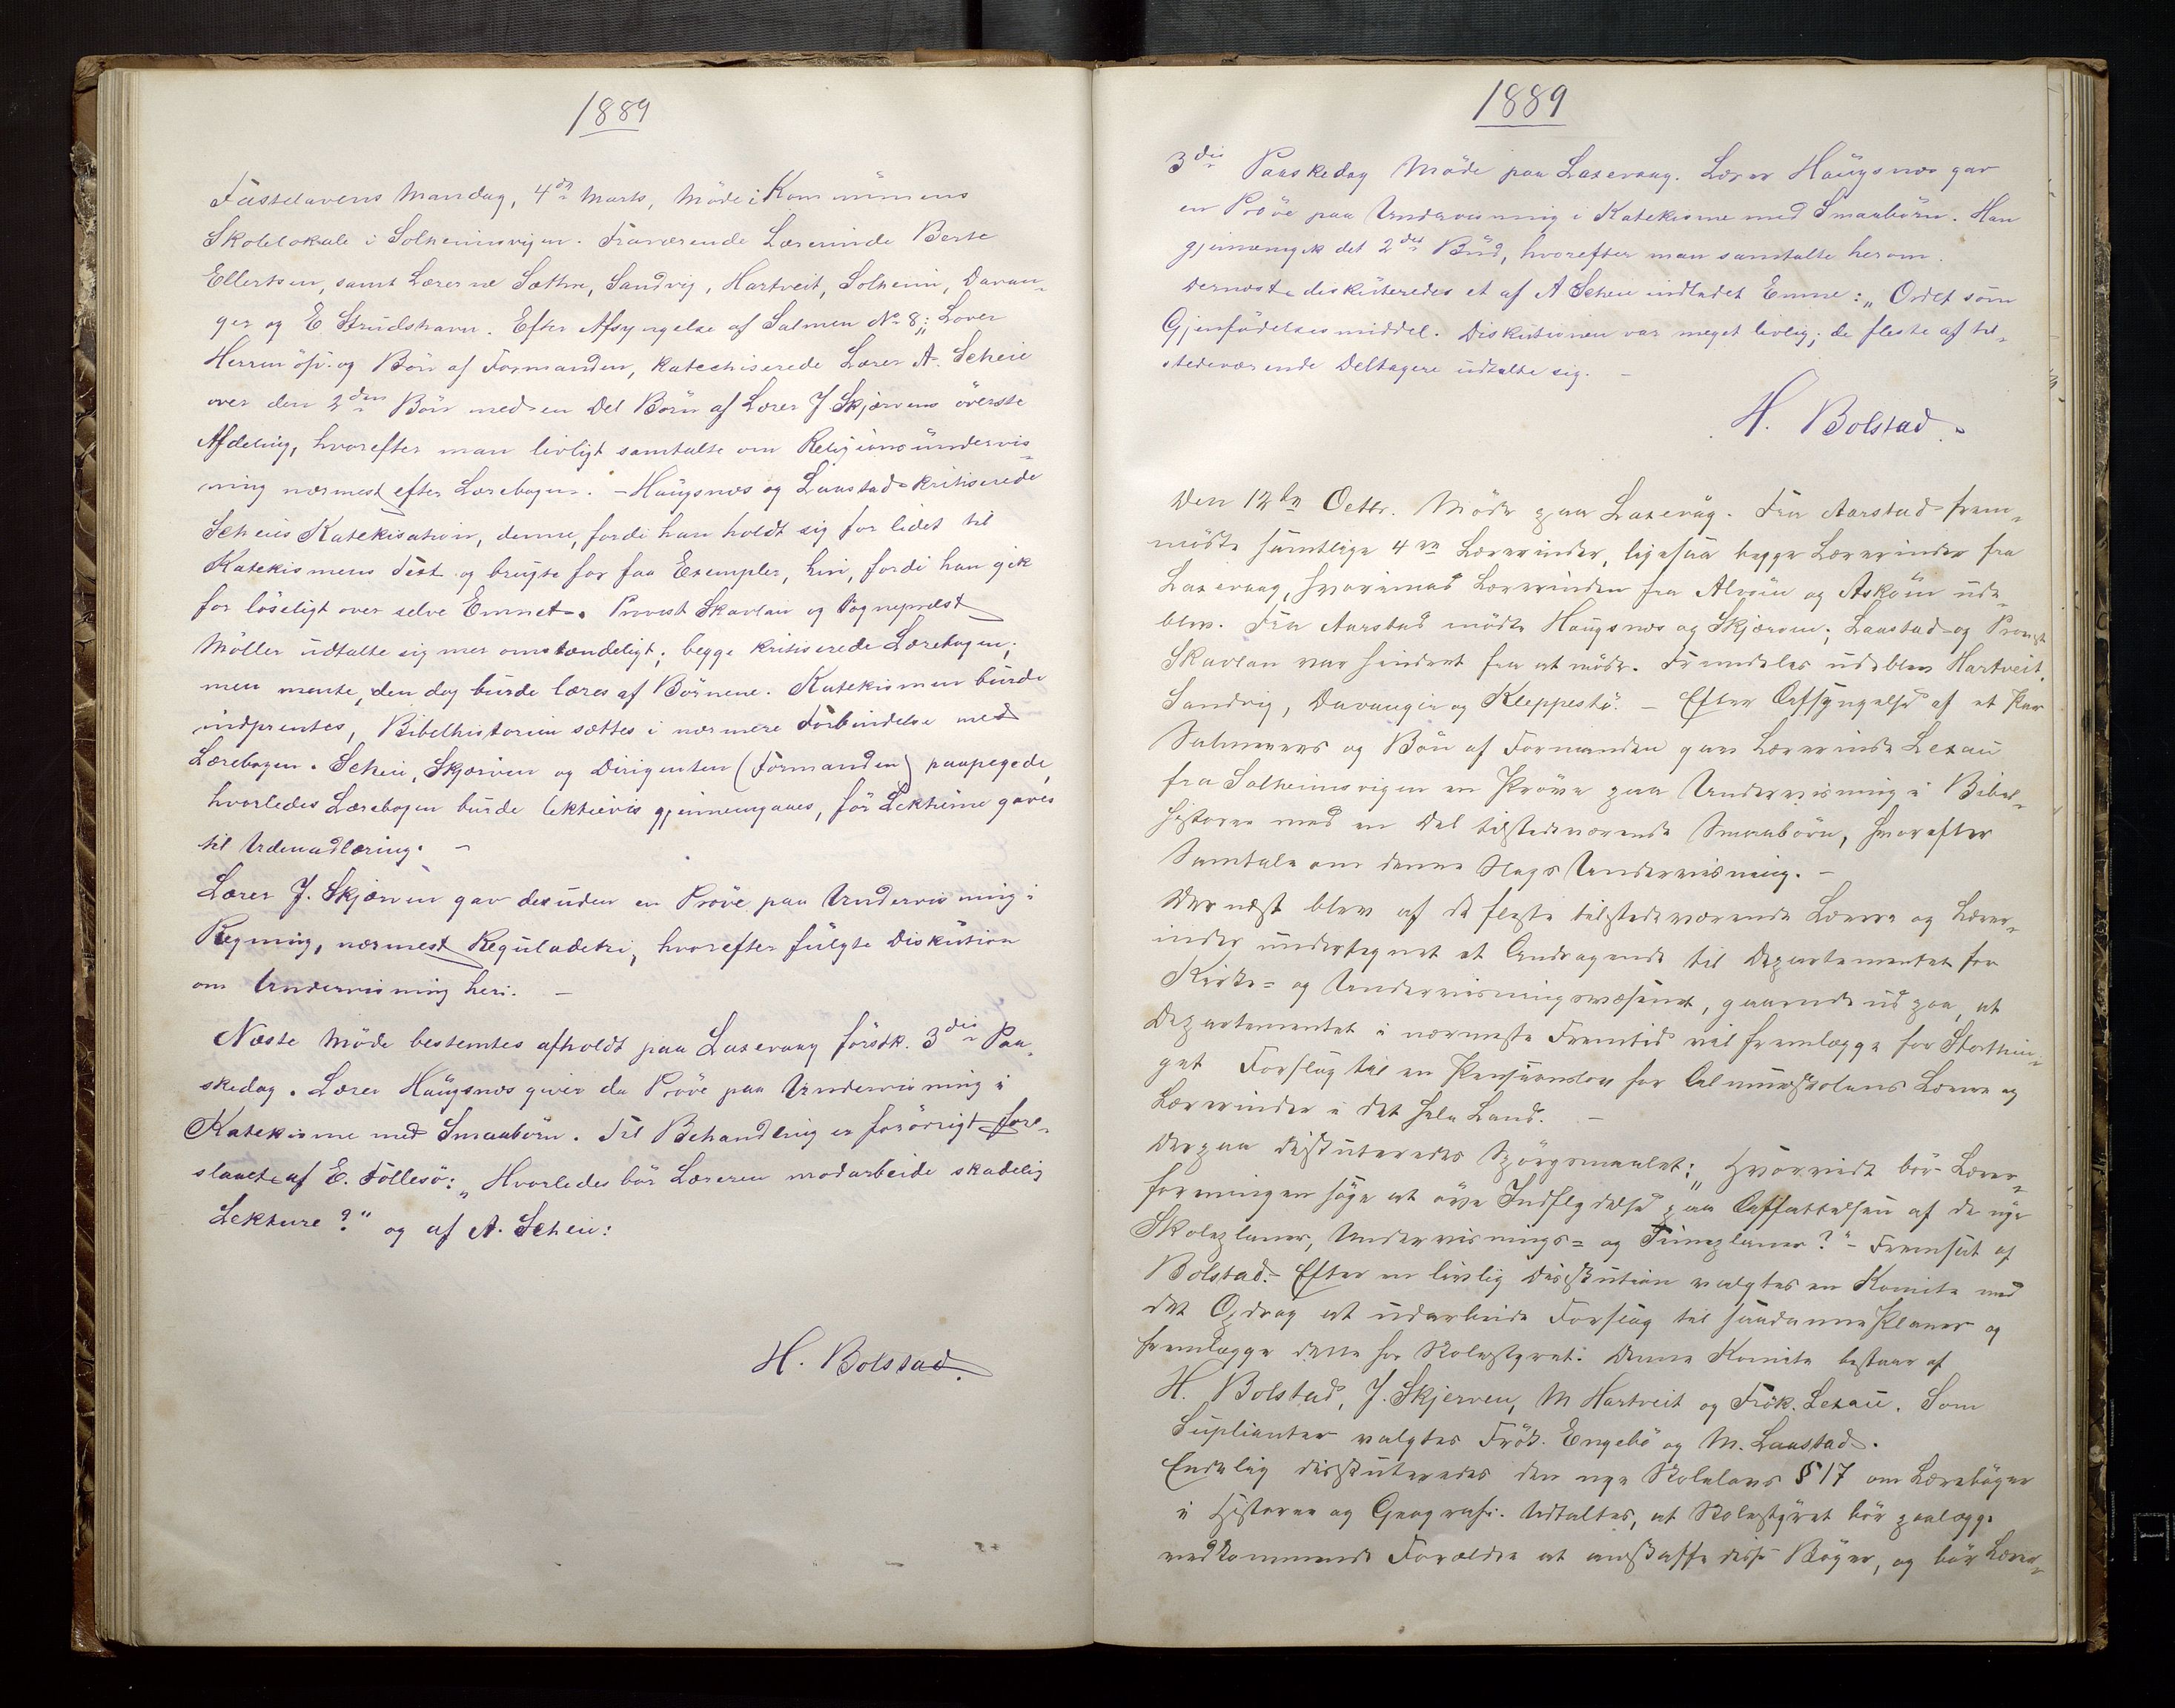 1889
Fastelavens Mandag, 4de Marts, Möde i Kommunens
Skolelokale i Solheimsvigen. Fraværende Lærerinde Berte
Ellertsen, samt Lærerne Sæthre, Sandvig, Hartveit, Solheim, Davan-
ger og E Strudshavn. Efter Afsyngelse af Salmen No 8: „Lover
Herren" og Bön af Formanden, katechiserede Lærer A. Scheie
over den 2den Bön med en Del Börn af Lærer J. Skjærvens överste
Afdeling, hvorefter man livligt samtalte om Religionsundervis-
ning nærmest efter Lærebogen. - Haugsnes og Laastad kritiserede
Scheies Katekisation, denne, fordi han holdt sig for lidet til
Katekismens Text og brugte for faa Exempler, hin, fordi han gik
for löseligt over selve Emnet. Provst Skavlan og Sogneprest
Möller udtalte sig mer omstændeligt; begge kritiserede Lærebogen;
men mente, den dog burde læres af Börnene. Katekismen burde
indprentes, Bibelhistorien sættes i nærmere Forbindelse med
Lærebogen. Scheie, Skjærven og Dirigenten (Formanden) paapegede,
hvorledes Lærebogen burde lektievis gjennemgaaes, för Lektierne gaves
til Udenadlæring. -
Lærer J. Skjærven gav desuden en Pröve paa Undervisning i
Regning, nærmest Reguladetri, hvorefter fulgte Diskution
om Undervisning heri. -
Næste Möde bestemtes afholdt paa Laxevaag förstk. 3die Paa-
skedag. Lærer Haugsnes giver da Pröve paa Undervisning i
Katekisme med Smaabörn. Til Behandling er forövrigt fore-
slaaet af E. Föllesö: „Hvorledes bör Læreren modarbeide skadelig
Lekture?" og af A. Scheie:
H. Bolstad.
1889
3die Paaskedag Möde paa Laxevaag. Lærer Haugsnes gav
en Pröve paa Undervisning i Katekisme med Smaabörn. Han
gjennemgik det 2det Bud, hvorefter man samtalte herom.
Dernæst diskuteredes et af A Scheie indladet Emne: „Ordet som
Gjenfödelsesmiddel. Diskutionen var meget livlig; de fleste af til-
stedeværende Deltagere udtalte sig. -
H. Bolstad.
Den 12te Octbr. Möde paa Laxevåg. Fra Aarstad frem-
mödte samtlige 4re Lærerinder, ligesaa begge Lærerinder fra
Laxevaag, hvorimod Lærerinden fra Alvöen og Asköen ude-
blev. Fra Aarstad mödte Haugsnes og Skjærven; Laastad og Provst
Skavlan var hindret fra at möde. Fremdeles udeblev Hartveit,
Sandvig, Davanger og Kleppestö. - Efter Afsyngelse af et Par
Salmevers og Bön af Formanden gav Lærerinde Lexau
fra Solheimsvigen en Pröve paa Undervisning i Bibel-
historie med en Del tilstedeværende Smaabörn, hvorefter
Samtale om denne Slags Undervisning. -
Dernæst blev af de fleste tilstedeværende Lærere og Lærer-
inder undertegnet et Andragende til Departementet for
Kirke- og Undervisningsvæsenet, gaaende ud paa, at
Departementet i nærmeste Fremtid vil fremlægge for Storthin-
get Forslag til en Pensionslov for Almueskolens Lærere og
Lærerinder i det hele Land. -
Derpaa diskuteredes Spörgsmaalet: „Hvorvidt bör Lærer-
foreningen söge at öve Indflydelse paa Affattelsen af de nye
Skoleplaner, Undervisnings- og Timeplaner?" - Fremsat af
Bolstad. Efter en livlig Diskution valgtes en Komite med
det Opdrag at udarbeide Forslag til saadanne Planer og
fremlægge dette for Skolestyret. Denne Komite bestaar af
H. Bolstad, J. Skjerven, M Hartveit og Frök. Lexau. Som
Suplianter valgtes Frök. Engebö og M. Laastad.
Endelig diskuteredes den nye Skolelovs § 17 om Læreböger
i Historie og Geografi. Udtaltes, at Skolestyret bör paalægge
vedkommende Forældre at anskaffe disse Böger, og bör Lærer-